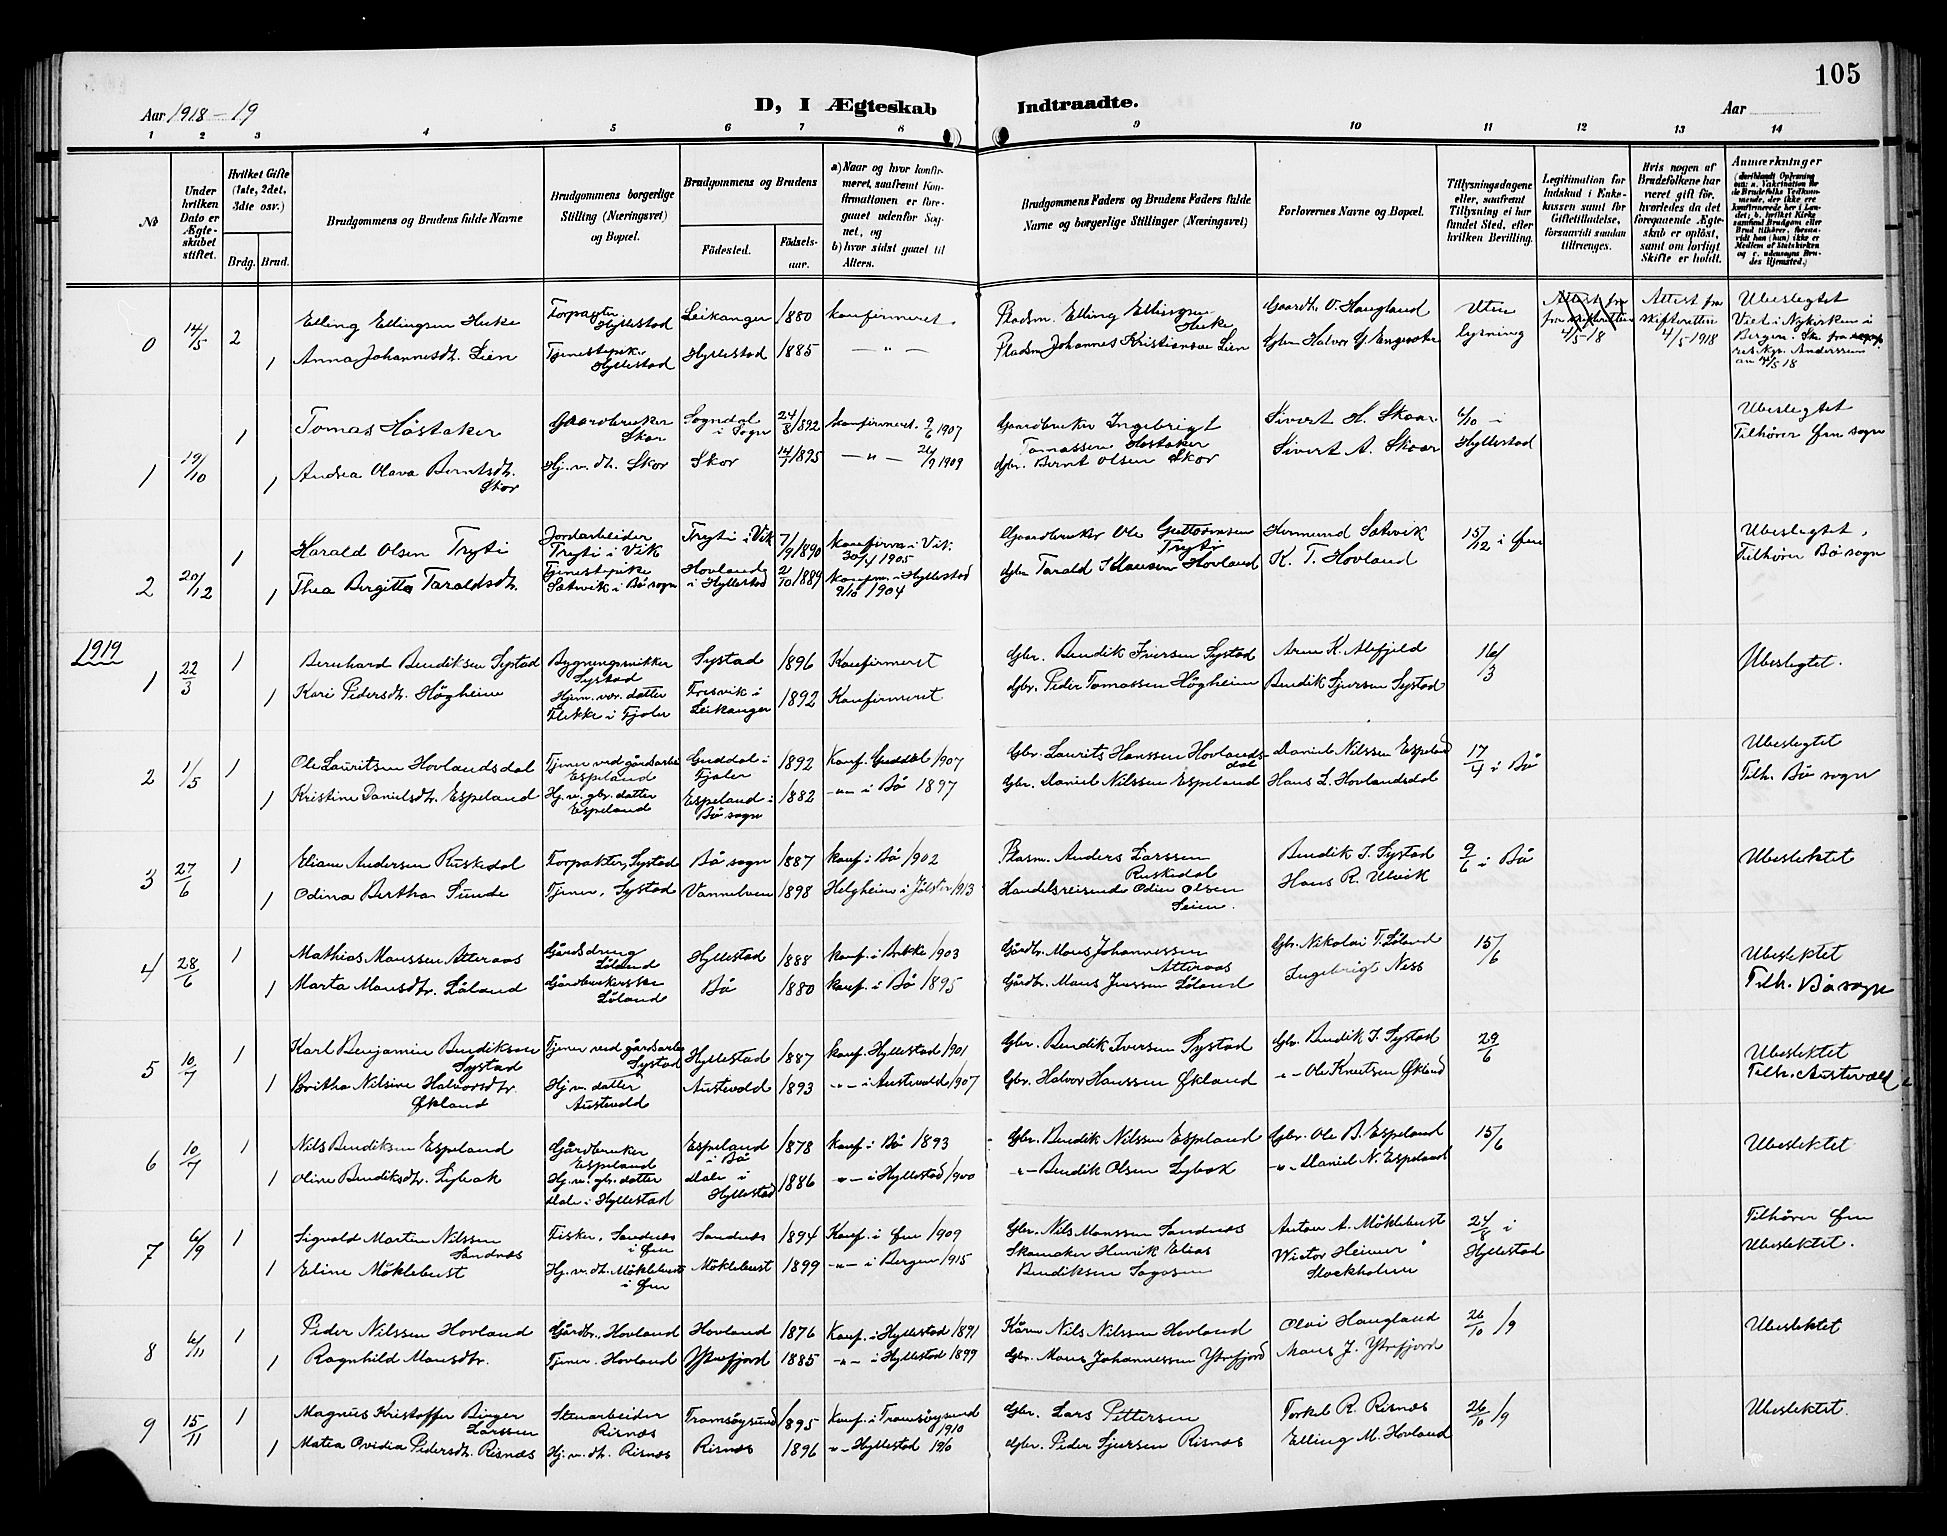 105
Aar 1918-19
D, I Ægteskab Indtraadte.
Aar
1 2 3 4 5 6 7 8 9 10 11 12 13 14
No
Under hvilken Dato er Ægteskabet stiftet.
Hvilket Gifte (1ste, 2det, 3dte osv.)
Brdg. Brud.
Brudgommens og Brudens fulde Navne
Brudgommens borgerlige Stilling (Næringsvei) og Bopæl.
Brudgommens og Brudens
Födested.
Födselsaar.
a) Naar og hvor konfirmeret, saafremt Konfirmationen er foregaaet udenfor Sognet, og
b) hvor sidst gaaet til Alters.
Brudgommens Faders og Brudens Faders fulde Navne og borgerlige Stillinger (Næringsvei)
Forlovernes Navne og Bopæl.
Tillysningsdagene eller, saafremt Tillysning ei har fundet Sted, efter hvilken Bevilling.
Legitimation for Indskud i Enkekassen samt for Giftetilladelse, forsaavidt saadan tiltrænges.
Hvis nogen af Brudefolkene har været gift för, hvorledes da det foregaaende Ægteskab er oplöst, samt om lovligt Skifte er holdt.
Anmærkninger
0 14/5 2 Elling Ellingsen Huke Forpagter Hyllestad Leikanger 1880 konfirmeret Pladsm. Elling Ellingsen Huke Gaardb. O. Haugland Uten lysning Attest fra skifteretten 4/5-18 Attest fra skifteretten 4/5-1918 Ubeslegtet
Viet i Nykirken i Bergen.
1 Anna Johannesdt. Lien Tjenestepike Hyllestad Hyllestad 1885 — " — Pladsm Johannes Kristiansen Lien
1 19/10 1 Tomas Høstaker Gaardbruker Skor Sogndal i Sogn 24/8 1892 konfirmeret 9/6 1907 Gaardbruker Ingebrigt Tomassen Høstaker Sivert H. Skaar 6/10 i Hyllestad Ubeslegtet
Tilhører Øen sogn
1 Andrea Olava Berntsdt. Skor Hj.v. dt. Skor Skor 14/7 1895 — " — 26/9 1909 Gbr. Bernt Olsen Skor Sivert A. Skaar
2 20/12 1 Harald Olsen Tryti Jordarbeider Tryti i Vik Tryti i Vik 7/9 1890 konfirm i Vik 30/4 1905 Gaardbruker Ole Guttormsen Tryti Hermund Sætvik 15/12 i Øen Ubeslegtet,
Tilhører Bø sogn
1 Thea Birgitta Taraldsdt. Tjenestepike Sætvik i Bø sogn Hovland i Hyllestad 2/10 1889 konfirm. i Hyllestad 9/10 1904 Gbr Tarald Hovland K. T. Hovland
1919
1 22/3 1 Bernhard Bendiksen Systad Bygningssnikker Systad Systad 1896 Konfirmeret Gbr. Bendik Iversen Systad Arne K. Flefjeld 16/3 Ubeslegtet.
1 Kari Pedersdt. Högheim Hjem. vær. datter Flekke i Fjaler Fresvik i Leikanger 1892 Konfirmeret Gbr. Peder Tomassen Högheim Bendik Sjursen Systad
2 1/5 1 Ole Lauritsen Hovlandsdal Tjener ved gårdsarbei Espeland Guddal i Fjaler 1892 Konf. Guddal 1907 Gbr. Laurits Hanssen Hovlandsdal Daniel Nilssen Espeland 17/4 i Bø Ubeslegtet
Tilh. Bø sogn
1 Kristine Danielsdtr. Espeland Hj.v. gbr. datter Espeland Espeland i Bø sogn 1882 -"- i Bø 1897 Gbr. Daniel Nilssen Espeland Hans L. Hovlandsdal
3 27/6 1 Eliam Andersen Ruskedal Forpakter, Systad Bø sogn 1887 konf. i Bø 1902 Plasm. Anders Larssen Ruskedal Bendik I. Systad 9/6 i Bø Ubeslektet
1 Odina Bertha Sunde Tjener, Systad Vannelven 1898 Helgheim i Jölster 1913 Handelsreisende Odin Olsen Seim. Hans R. Ulvik
4 28/6 1 Mathias Monssen Atteraas Gårdsdreng Løland Hyllestad 1888 konf. i Brekke 1903 Gårdbr. Mons Johannessen Atteraas Gbr. Nikolai T. Løland 15/6 Ubeslektet
Tilh. Bø sogn
1 Marta Monsdtr. Løland Gårdbrukerske Løland Bø 1880 konf. i Bø 1895 Gårdbr. Mons Jenssen Løland Ingebrigt Ness
5 10/7 1 Karl Benjamin Bendiksen Systad Tjener ved gårdsarbei Systad Hyllestad 1887 konf. Hyllestad 1901 Gbr. Bendik Iversen Systad Gbr. Bendik I. Systad 29/6 Ubeslektet
Tilh. Austevold
1 Britha Nilsine Halvorsdtr. Økland Hj.v. datter Austevold Austevold 1893 -"- i Austevold 1907 Gbr. Halvor Hanssen Økland -"- Ole Knutsen Økland
6 10/7 1 Nils Bendiksen Espeland Gårdbruker Espeland Espeland i Bø 1878 konf. i Bø 1893 Gbr. Bendik Nilssen Espeland Gbr. Ole B. Espeland 15/6 Ubeslektet
1 Oline Bendiksdt. Lybak Hj.v. gbr. datter Dale i Hyllestad Dale i Hyllestad 1886 -"- i Hyllestad 1900 -"- Bendik Olsen Lybak -"- Daniel N. Espeland
7 6/9 1 Sigvald Martin Nilssen Sandnæs Fisker, Sandnæs i Øen Sandnæs 1894 Konf. i Øen 1909 Gbr. Nils Monssen Sandnæs Anton A. Möklebust 24/8 i Hyllestad Tilhører Øen
Ubeslektet.
1 Eline Möklebust Hj.v. dt. Möklebust i Øen Möklebust 1899 -"- i Bergen 1915 Skomaker Henrik Elias Bendiksen Sagosen Victor Heimer Stockholm
8 6/11 1 Peder Nilssen Hovland Gårdbr., Hovland Hovland 1876 Konf. i Hyllestad 1891 Kårm. Nils Nilssen Hovland Olai Haugland 26/10 19 Ubeslektet
1 Ragnhild Monsdtr. Tjener. Hovland Ytrefjord 1885 -"- i Hyllestad 1899 Gbr. Mons Johannessen Ytrefjord Mons J. Ytrefjord
9 15/11 1 Magnus Kristoffer Birger Larssen Stenarbeider Risnæs Tromsøysund 1895 Konf. i Tromsøysund 1910 Gbr. Lars Pettersen Torkel R. Risnæs 26/10 19 Ubeslektet.
1 Matea Ovidia Pedersdt. Risnæs Hj.v. dt. Risnæs Risnæs 1896 -"- Hyllestad 1910 Gbr. Peder Sjursen Risnæs Elling M. Hovland